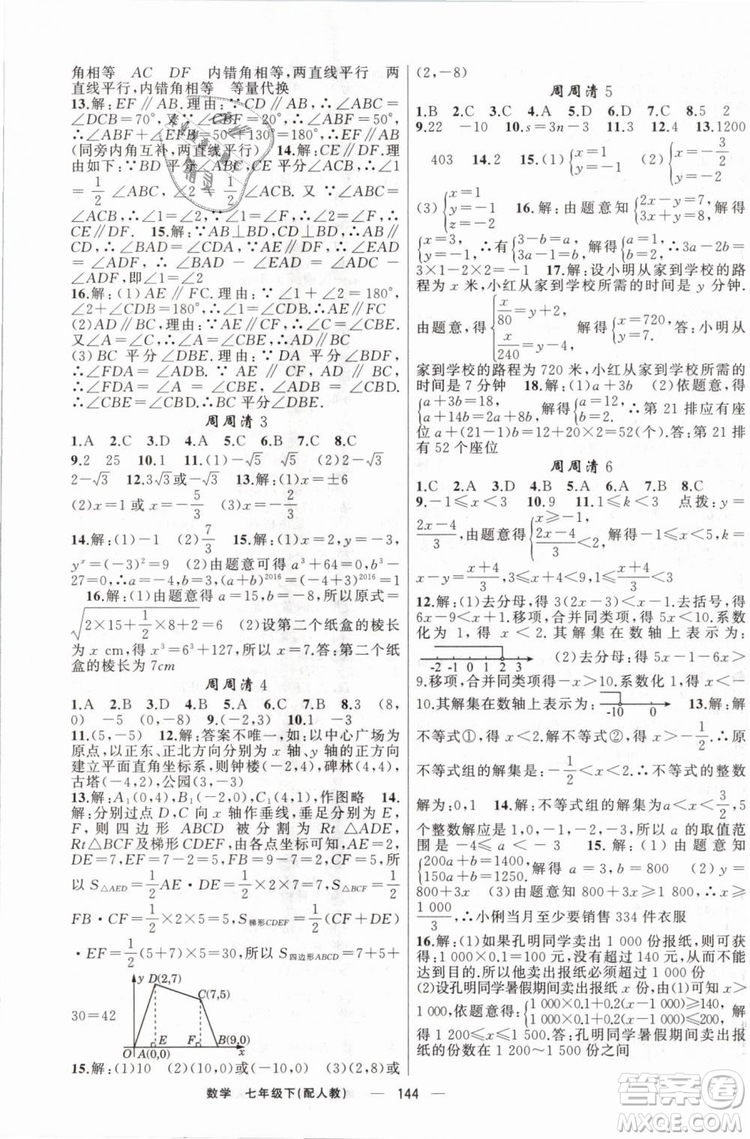 角相等 AC DF 内错角相等,两直线平行 两
直线平行,内错角相等 等量代换
13.解:EF∥AB.理由:∵CD∥AB,∴∠ABC=
∠DCB=70°.∵∠CBF=20°,∴∠ABF=50°,
∴∠ABF+∠EFB=50°+130°=180°,∴EF∥AB
(同旁内角互补,两直线平行) 14.解:∠A=∠F.理
由如下:∵BD平分∠ABC,CE平分∠ACB,∴∠1
=1/2∠ABC,∠2=1/2∠ACB.又∵∠ABC=
∠ACB,∴∠1=∠2.又∵∠1=∠F,∴∠2=∠F,∴CE∥DF
15.解:∵AB⊥BD,CD⊥BD,∴AB∥CD,
∴∠BAD=∠CDA.∵∠BAF=∠EDC,∴∠EAD
=∠ADE,即∠1=∠2
16.解:(1)AE∥FC.理由:∵∠1+∠2=180°,
∠2+∠CDB=180°,∴∠1=∠CDB,∴AE∥FC
(2)AD∥BC.理由:∵AE∥CF,∴∠C=∠CBE.
又∠A=∠C,∴∠A=∠CBE,∴AD∥BC
(3)BC平分∠DBE.理由:∵DA平分∠BDF,
∴∠FDA=∠ADB.∵AE∥CF,AD∥BC,
∴∠FDA=∠A=∠CBE,∠ADB=∠CBD.
∴∠CBE=∠CBD.∴BC平分∠DBE
周周清3
1.A 2.C 3.D 4.A 5.C 6.D 7.B 8.C
9.2 25 10.1 11.(1)-√5 √5 (2)√3-2
2-√3 12.3√3或-√3 13.解:(1)x=±6
(2)x=1或x=-5/3 (3)x=-3/2
14.解:(1)-1 (2)7/3 15.解:(1)x=2,y=-3,
y^x=(-3)²=9 (2)由题意可得a³+64=0,b³-
27=0.∴a=-4,b=3,∴(a+b)^2016=(-4+3)^2016=1
16.解:(1)由题意得a=15,b=8,所以原式=
√(2×15+1/2×8+2)=6 (2)设第二个纸盒的棱长
为x cm,∴x³=6³+127,∴x³=343,∴x=7.答:第二个纸
盒的棱长为7cm
周周清4
1.A 2.D 3.D 4.A 5.B 6.C 7.B 8.(3,
0) (0,5) 9.(-2,3) 10.1 -3
11.(5,-5) 12.解:答案不唯一,如:以中心广场为
原点,以正东、正北方向分别为x轴、y轴的正方向
建立平面直角坐标系,则钟楼(-2,-1),碑林(3,1),
古塔(-4,-2),公园(3,-3)
13.解:A₁(0,4),B₁(-2,0),C₁(1,1),作图略 14.
解:分别过点D,C向x轴作垂线,垂足分别为E,
F,则四边形ABCD被分割为Rt△ADE,
Rt△BCF及梯形CDEF,由各点坐标可知,AE=2,
DE=7,EF=7-2=5,FB=9-7=2,CF=5,所
以S△AED=1/2AE·DE=1/2×2×7=7,S△CFB=1/2
FB·CF=1/2×2×5=5,S梯形CDEF=1/2(CF+DE)
·EF=1/2(5+7)×5=30,所以S四边形ABCD=7+5+
30=42
y D(2,7)
C(7,5)
O A(0,0) E F B(9,0) x
15.解:(1)10 (2)由题意可知P(8,2)或
(2,-8)
周周清5
1.B 2.C 3.C 4.A 5.D 6.C 7.B 8.5 2
9.22 -10 10.s=3n-3 11.3 12.4 13.1200
403 14.2 15.(1){x=1 y=1 (2){x=-1 y=-1
(3){x=1 y=-1 z=0 16.解:由题意知{2x-y=7, 3x+y=8,解得
{x=3, y=-1, ∴有{3-b=a, 3a-1=b,解得{a=1, b=2, ∴3a-b=
3×1-2=1 17.解:设小明从家到学校的路
程为x米,小红从家到学校所需的时间是y分钟.
由题意,得{x/80=y+2, x/240=y-4,解得{x=720, y=7,答:小明从
家到学校的路程为720米,小红从家到学校所需的
时间是7分钟 18.解:(1)a+3b (2)依题意得
{a+3b=18, a+14b=2(a+4b),解得{a=12, b=2, ∴第21排应有座
位a+20b=12+20×2=52(个).答:第21排
有52个座位
周周清6
1.A 2.C 3.D 4.C 5.A 6.D 7.B 8.C
9.-1≤m<2 10.9 11.1≤k<3 点拨:y=
(2x-4)/3,由题意得{(2x-4)/3≤2,解得-1≤x<5,k=
x-y=(x+4)/3,∴-1+4/3≤k<5+4/3,∴1≤k<3
12.解:(1)去分母,得3(2x-3)<x+1.去括号,得
6x-9<x+1.移项,合并同类项,得5x<10.系数
化为1,得x<2.其解集在数轴上表示为:
-2 -1 0 1 2 3 (2)去分母:得5x-1-6x≥
9.移项,合并同类项得-x≥10.系数化1,得x≤
-10.其解集在数轴上表示为: -10 0 13.解:解
不等式①,得x<2.解不等式②,得x>-1/2,∴原
不等式组的解集是:-1/2<x<2,∴不等式的整数
解为:0,1 14.解:不等式组的解集为a≤x<3,
5个整数解应为2,1,0,-1,-2,∴a的取值范
围是-3<a≤-2 15.解:(1)由题意得
{200a+b=1400, 150a+b=1250,解得a=3,b=800 (2)由题意知
(3)由题意知3x+800≥1800,x≥
1000/3,∴小俐当月至少要销售334件衣服
16.解:(1)如果孔明同学卖出1 000份报纸,则可获
得:1 000×0.1=100元,没有超过140元,从而不
能达到目的,故孔明同学卖出的报纸份数超过1 000份
(2)设孔明同学暑假期间卖出报纸x份,由(1)可知x>1
000,依题意得:{1 000×0.1+0.2(x-1 000)≥140, 1 000×0.1+0.2(x-1 000)≤200,解得
1 200≤x≤1 500.答:孔明同学暑假期间卖出报
纸的份数在1 200~1 500份之间
数学 七年级下(配人教) — 144 —
答案圈
MXQE.COM